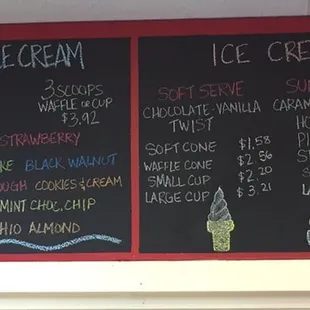 E CREAM
3 SCOOPS
WAFFLE OR CUP
$3.92
STRAWBERRY
KE BLACK WALNUT
OUGH COOKIES & CREAM
MINT CHOC. CHIP
HIO ALMOND
ICE CRE
SOFT SERVE
CHOCOLATE-VANILLA
TWIST
SOFT CONE $1.58
WAFFLE CONE $2.56
SMALL CUP $2.20
LARGE CUP $3.21
SU
CARAM
HO
P